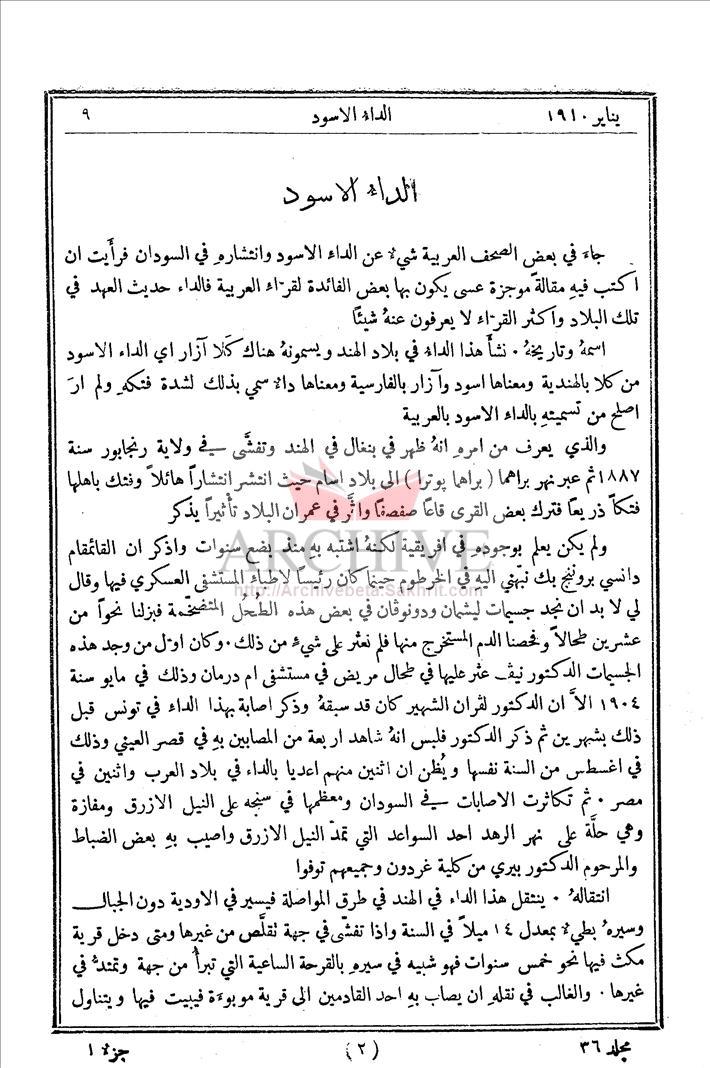 يناير ١٩١٠ الداء الاسود ٩
الداء الاسود
جاء في بعض الصحف العربية شيء عن الداء الاسود وانتشاره في السودان فرأيت ان
اكتب فيهِ مقالةً موجزة عسى يكون بها بعض الفائدة لقراء العربية فالداء حديث العهد في
تلك البلاد واكثر القراء لا يعرفون عنهُ شيئًا
اسمهُ وتاريخهُ . نشأ هذا الداء في بلاد الهند ويسمونهُ هناك كَلا آزار اي الداء الاسود
من كلا بالهندية ومعناها اسود وآزار بالفارسية ومعناها داء سمي بذلك لشدة فتكهِ ولم ارَ
اصلح من تسميتهِ بالداء الاسود بالعربية
والذي يعرف من امرهِ انهُ ظهر في بنغال في الهند وتفشَّى في ولاية رنجابور سنة
١٨٨٧ ثم عبر نهر براهما ( براهما پوترا ) الى بلاد اسام حيث انتشر انتشاراً هائلاً وفتك باهلها
فتكاً ذريعاً فترك بعض القرى قاعاً صفصفاً واثَّر في عمران البلاد تأثيراً يذكر
ولم يكن يعلم بوجوده في افريقية لكنهُ اشتبه بهِ منذ بضع سنوات واذكر ان القائمقام
دانسي بروننج بك نبهني اليه في الخرطوم حينما كان رئيساً لاطباء المستشفى العسكري فيها وقال
لي لا بد ان نجد جسيمات ليشمان ودونوڤان في بعض هذه الطُحُل المتضخمة فبزلنا نحواً من
عشرين طحالاً وفحصنا الدم المستخرج منها فلم نعثر على شيءٍ من ذلك . وكان اول من وجد هذه
الجسيمات الدكتور نيڤ عثر عليها في طحال مريض في مستشفى ام درمان وذلك في مايو سنة
١٩٠٤ الاَّ ان الدكتور لڤران الشهير كان قد سبقهُ وذكر اصابة بهذا الداء في تونس قبل
ذلك بشهرين ثم ذكر الدكتور فلبس انهُ شاهد اربعة من المصابين بهِ في قصر العيني وذلك
في اغسطس من السنة نفسها ويُظن ان اثنين منهم اعديا بالداء في بلاد العرب واثنين في
مصر . ثم تكاثرت الاصابات في السودان ومعظمها في سنجه على النيل الازرق ومفازة
وهي حلَّة على نهر الرهد احد السواعد التي تمدّ النيل الازرق واصيب بهِ بعض الضباط
والمرحوم الدكتور بيري من كلية غردون وجميعهم توفوا
انتقالهُ . ينتقل هذا الداء في الهند في طرق المواصلة فيسير في الاودية دون الجبال
وسيرهُ بطيء بمعدل ١٤ ميلاً في السنة واذا تفشّى في جهة تقلَّص من غيرها ومتى دخل قرية
مكث فيها نحو خمس سنوات فهو شبيه في سيرهِ بالقرحة الساعية التي تبرأ من جهة وتمتدُّ في
غيرها . والغالب في نقلهِ ان يصاب بهِ احد القادمين الى قرية موبوءة فيبيت فيها ويتناول
مجلد ٣٦ (٢) جزء ١
ARCHIVE
http://Archivebeta.Sakhrit.com